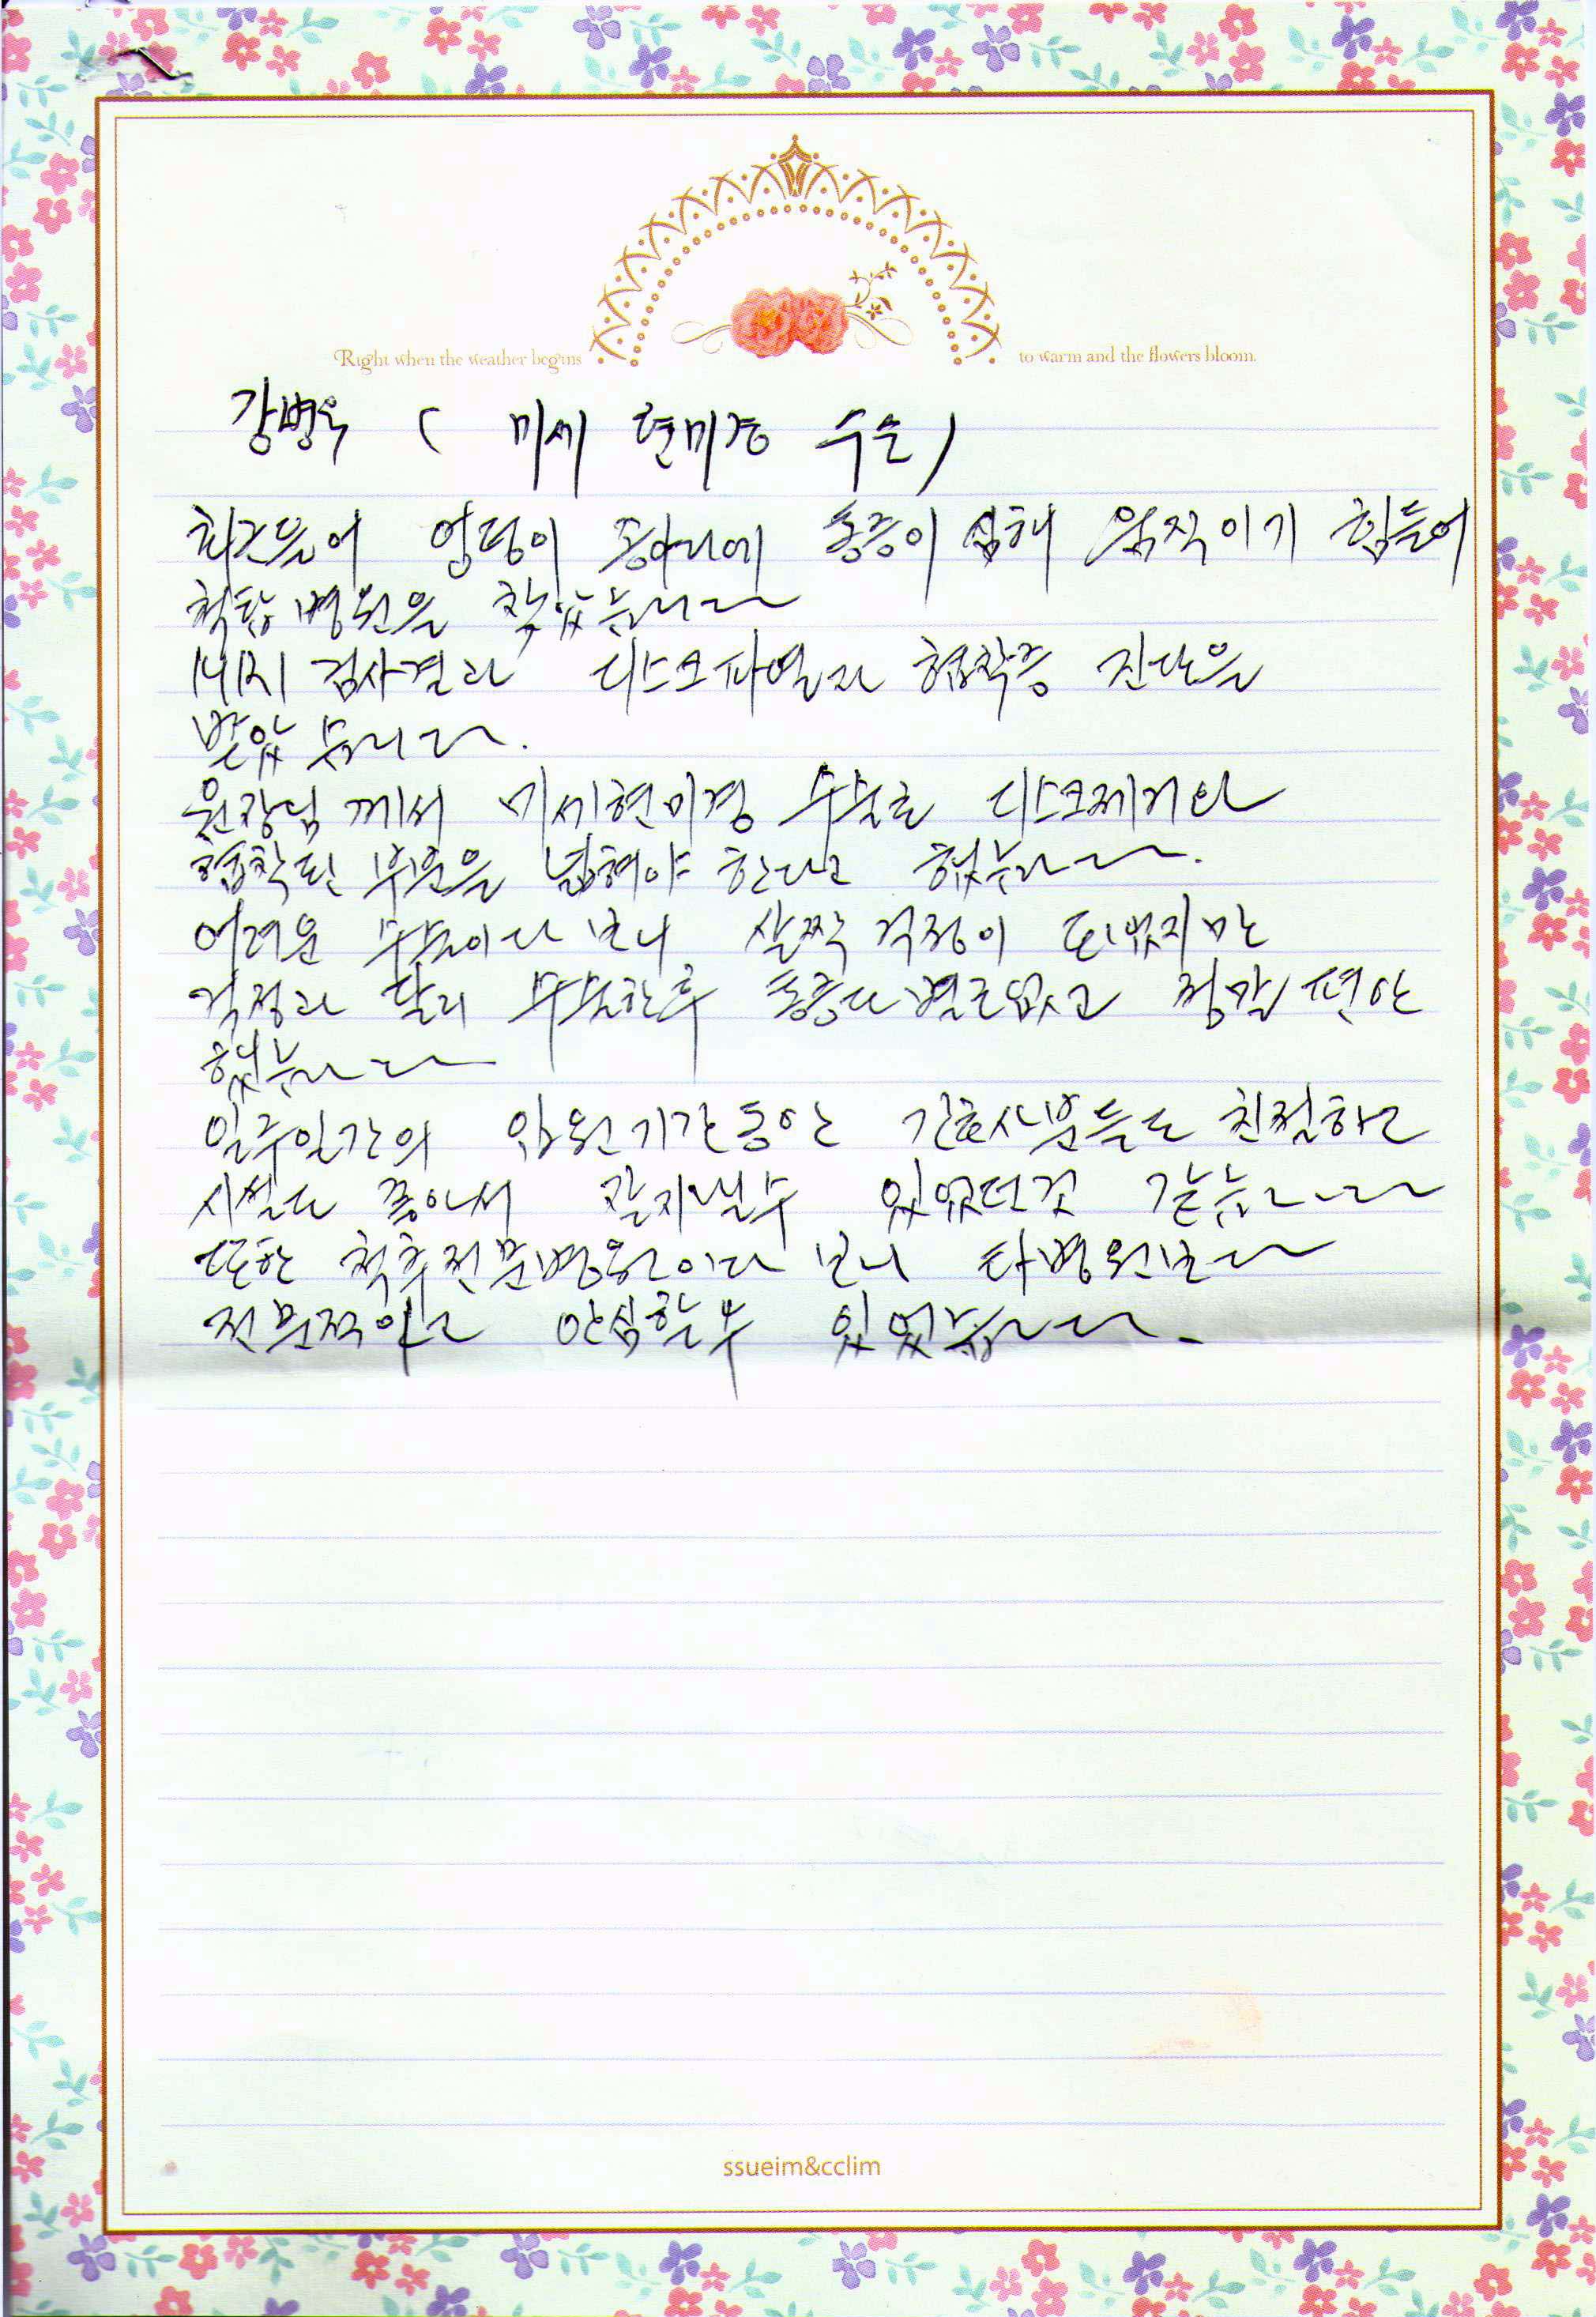 Right when the weather begins to warm and the flowers bloom.
강병욱 ( 미세 현미경 수술 )
최근들어 엉덩이 종아리에 통증이 심해 움직이기 힘들어
척탑병원을 찾았습니다
MRI 검사결과 디스크파열과 협착증 진단을
받았습니다.
원장님 께서 미세현미경 수술로 디스크제거와
협착된 부분을 넓혀야 한다고 했습니다.
어려운 수술이다 보니 살짝 걱정이 되었지만
걱정과 달리 수술한후 통증도 별로없고 정말 편안
했습니다
일주일간의 입원기간동안 간호사분들도 친절하고
시설도 좋아서 잘지낼수 있었던것 같습니다
또한 척추전문병원이다 보니 타병원보다
전문적이고 안심할수 있었습니다.
ssueim&cclim